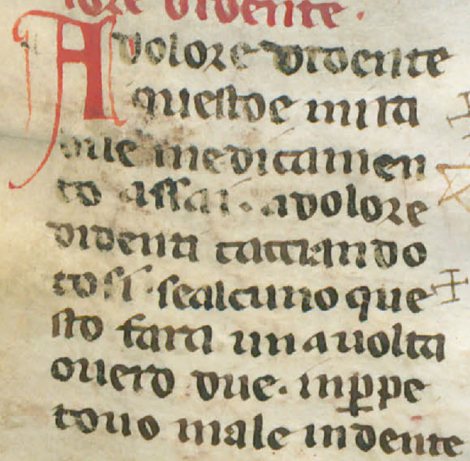 lore didente.
A dolore didente
questoe mira
bile medicamen
to assai. adolore
didenti cacciando
cosi. sealcuno que
sto fara una uolta
ouero due. inp̱pe
touo male indente